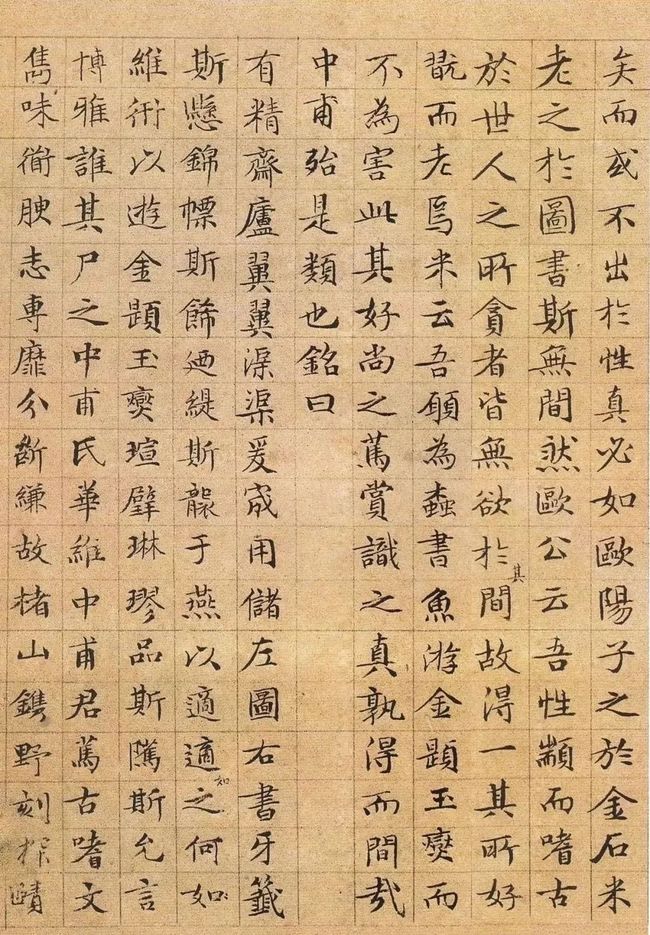 矣而或不出於性真必如歐陽子之於金石米
老之於圖書斯無間然歐公云吾性顓而嗜古
於世人之所貪者皆無欲於其間故得一其所好
翫而老焉米云吾願為蠹書魚游金題玉燮而
不為害此其好尚之篤賞識之真孰得而間哉
中甫殆是類也銘曰
有精齋廬翼翼渠渠爰宬用儲左圖右書牙籤
斯懸錦幖斯飾迺緹斯襲于燕以適適之如何如
維衎以遊金題玉燮瑄璧琳璆品斯隲斯允言
博雅誰其尸之中甫氏華維中甫君篤古嗜文
雋味衜腴志專靡分斷縑故楮山鐫野刻探賾